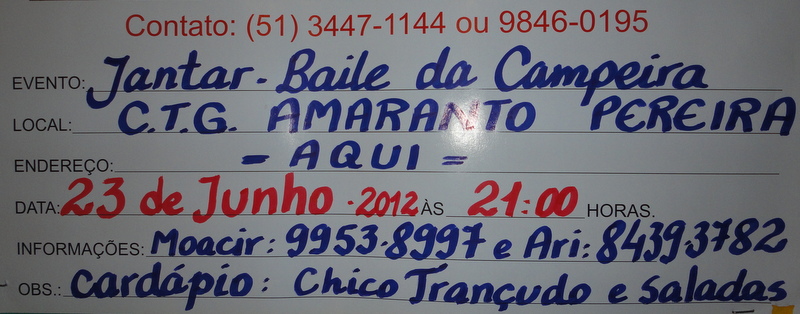 Contato: (51) 3447-1144 ou 9846-0195
EVENTO: Jantar-Baile da Campeira
LOCAL: C.T.G. AMARANTO PEREIRA
ENDEREÇO: - AQUI =
DATA: 23 de Junho . 2012 ÀS 21:00 HORAS.
INFORMAÇÕES: Moacir: 9953.8997 e Ari: 8439.3782
OBS.: Cardápio: Chico Trançudo e Saladas